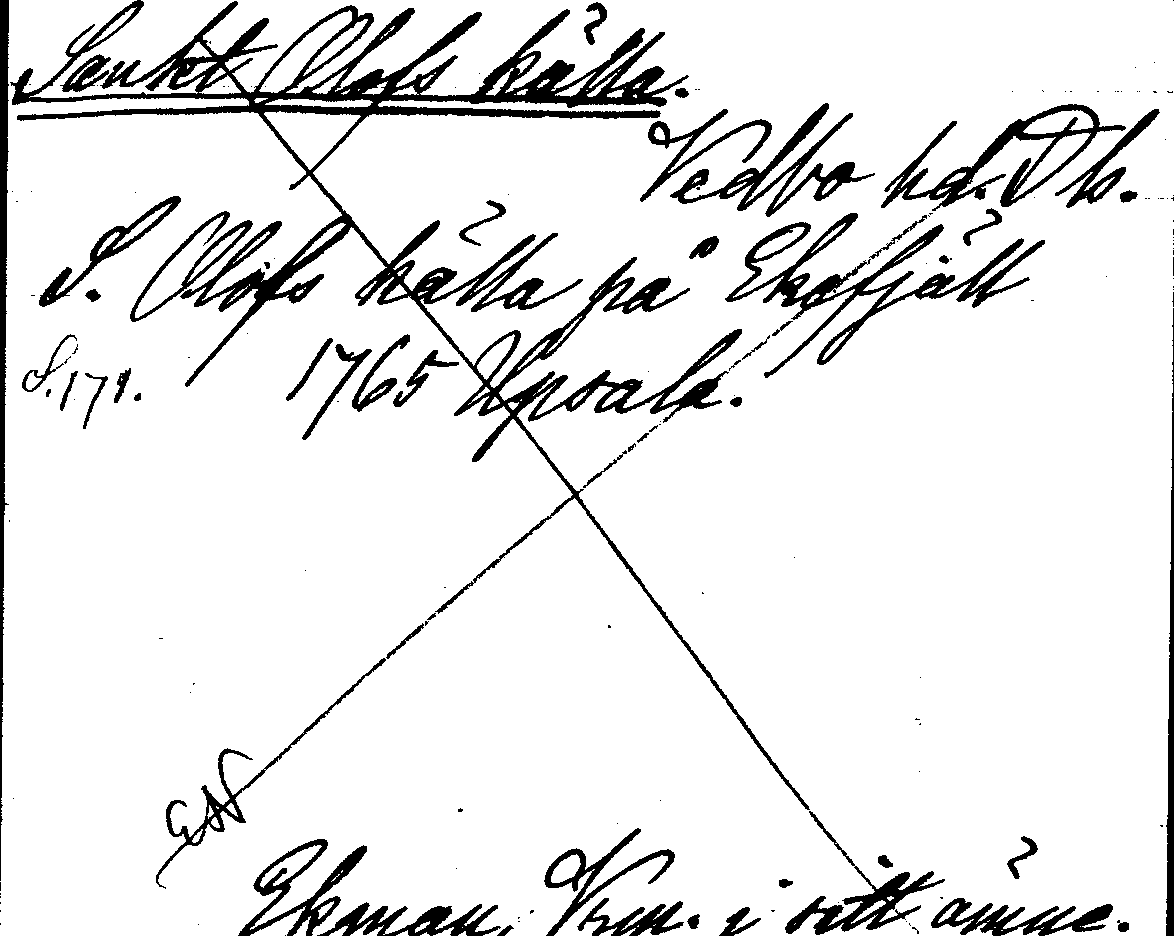 Sankt Olofs källa.
Vedbo hd. Dls.
S. Olofs källa på Ekefjäll
S. 171. 1765 Upsala.
Ekman, Vrm. i sitt ämne.